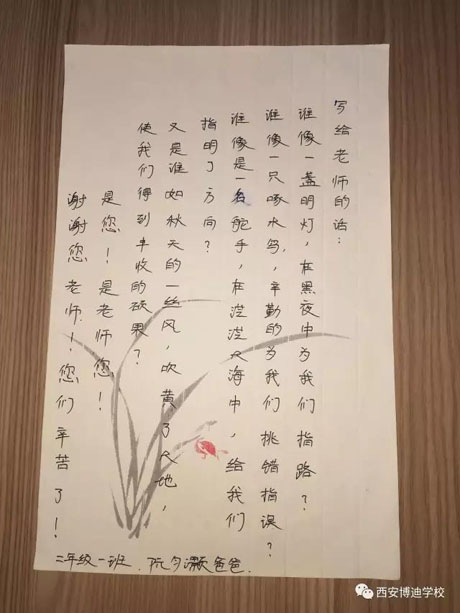 写给老师的话：
谁像一盏明灯，在黑夜中为我们指路？
谁像一只啄木鸟，辛勤的为我们挑错指误？
谁像是一名舵手，在茫茫大海中，给我们
指明了方向？
又是谁如秋天的一丝风，吹黄了大地，
使我们得到丰收的硕果？
是您！是老师您！
谢谢您老师！您们辛苦了！
二年级一班 阮夕灏爸爸
西安博迪学校